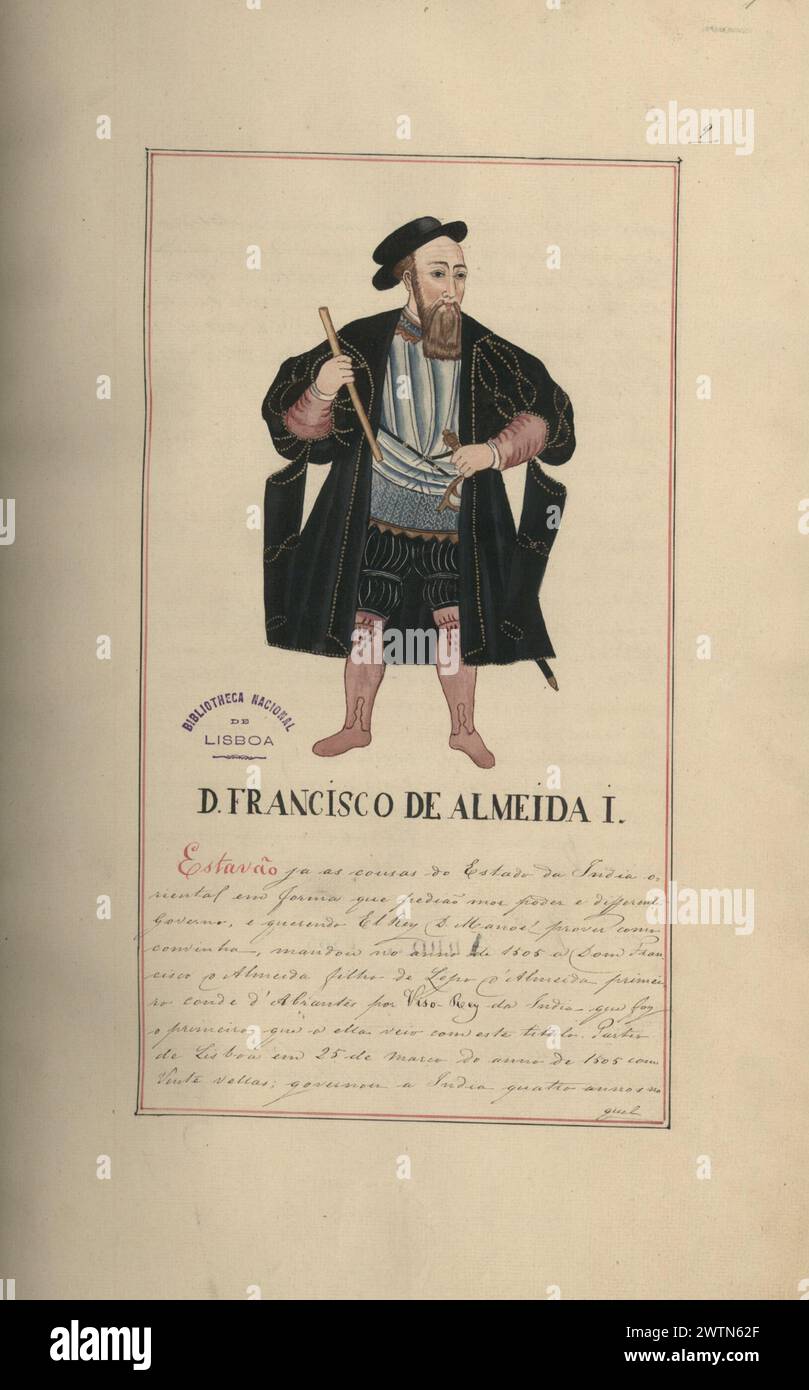 2
BIBLIOTHECA NACIONAL
DE
LISBOA
D. FRANCISCO DE ALMEIDA I.
Estavão ja as cousas do Estado da India o,
riental em forma que pedião mor poder e different
Governo, e querendo El Rey D. Manoel prover como
convinha, mandou no anno de 1505 a Dom Fran
cisco d'Almeida filho de Lopo d'Almeida primei
ro conde d'Abrantes por Viso-Rey da India que foy
o primeiro que a ella veio com este titolo. Partio
de Lisboa em 25 de Março do anno de 1505 com
Vinte vellas; governou a India quatro annos no
qual
alamy
Image ID: 2WTN62F
www.alamy.com